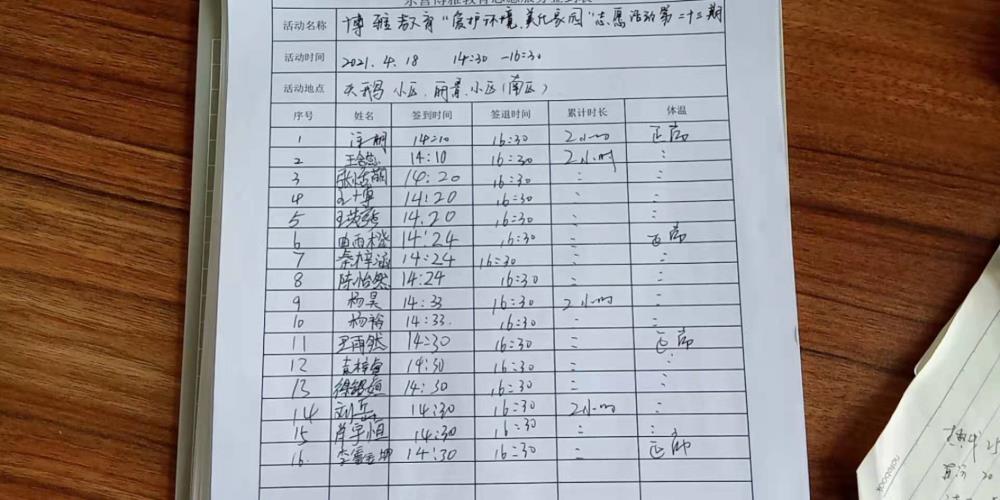 东营博雅教育志愿服务签到表
活动名称 博雅教育"爱护环境、美化家园"志愿活动第二十二期
活动时间 2021.4.18 14:30 -16:30
活动地点 天鹅小区、丽景小区(南区)
序号 姓名 签到时间 签退时间 累计时长 体温
1 14:10 16:30 2小时 正常
2 14:10 16:30 2小时 :
3 14:20 16:30 : :
4 14:20 16:30 : :
5 14:20 16:30 : :
6 曲雨橙 14:24 16:30 : 正常
7 秦梓涵 14:24 16:30 : :
8 陈怡然 14:24 16:30 : :
9 杨昊 14:33 16:30 2小时 :
10 杨裕 14:33 16:30 : :
11 王雨然 14:30 16:30 : 正常
12 14:30 16:30 : :
13 14:30 16:30 : :
14 刘岳 14:30 16:30 2小时 :
15 肖宇恒 14:30 16:30 : :
16 14:30 16:30 : 正常
notebook